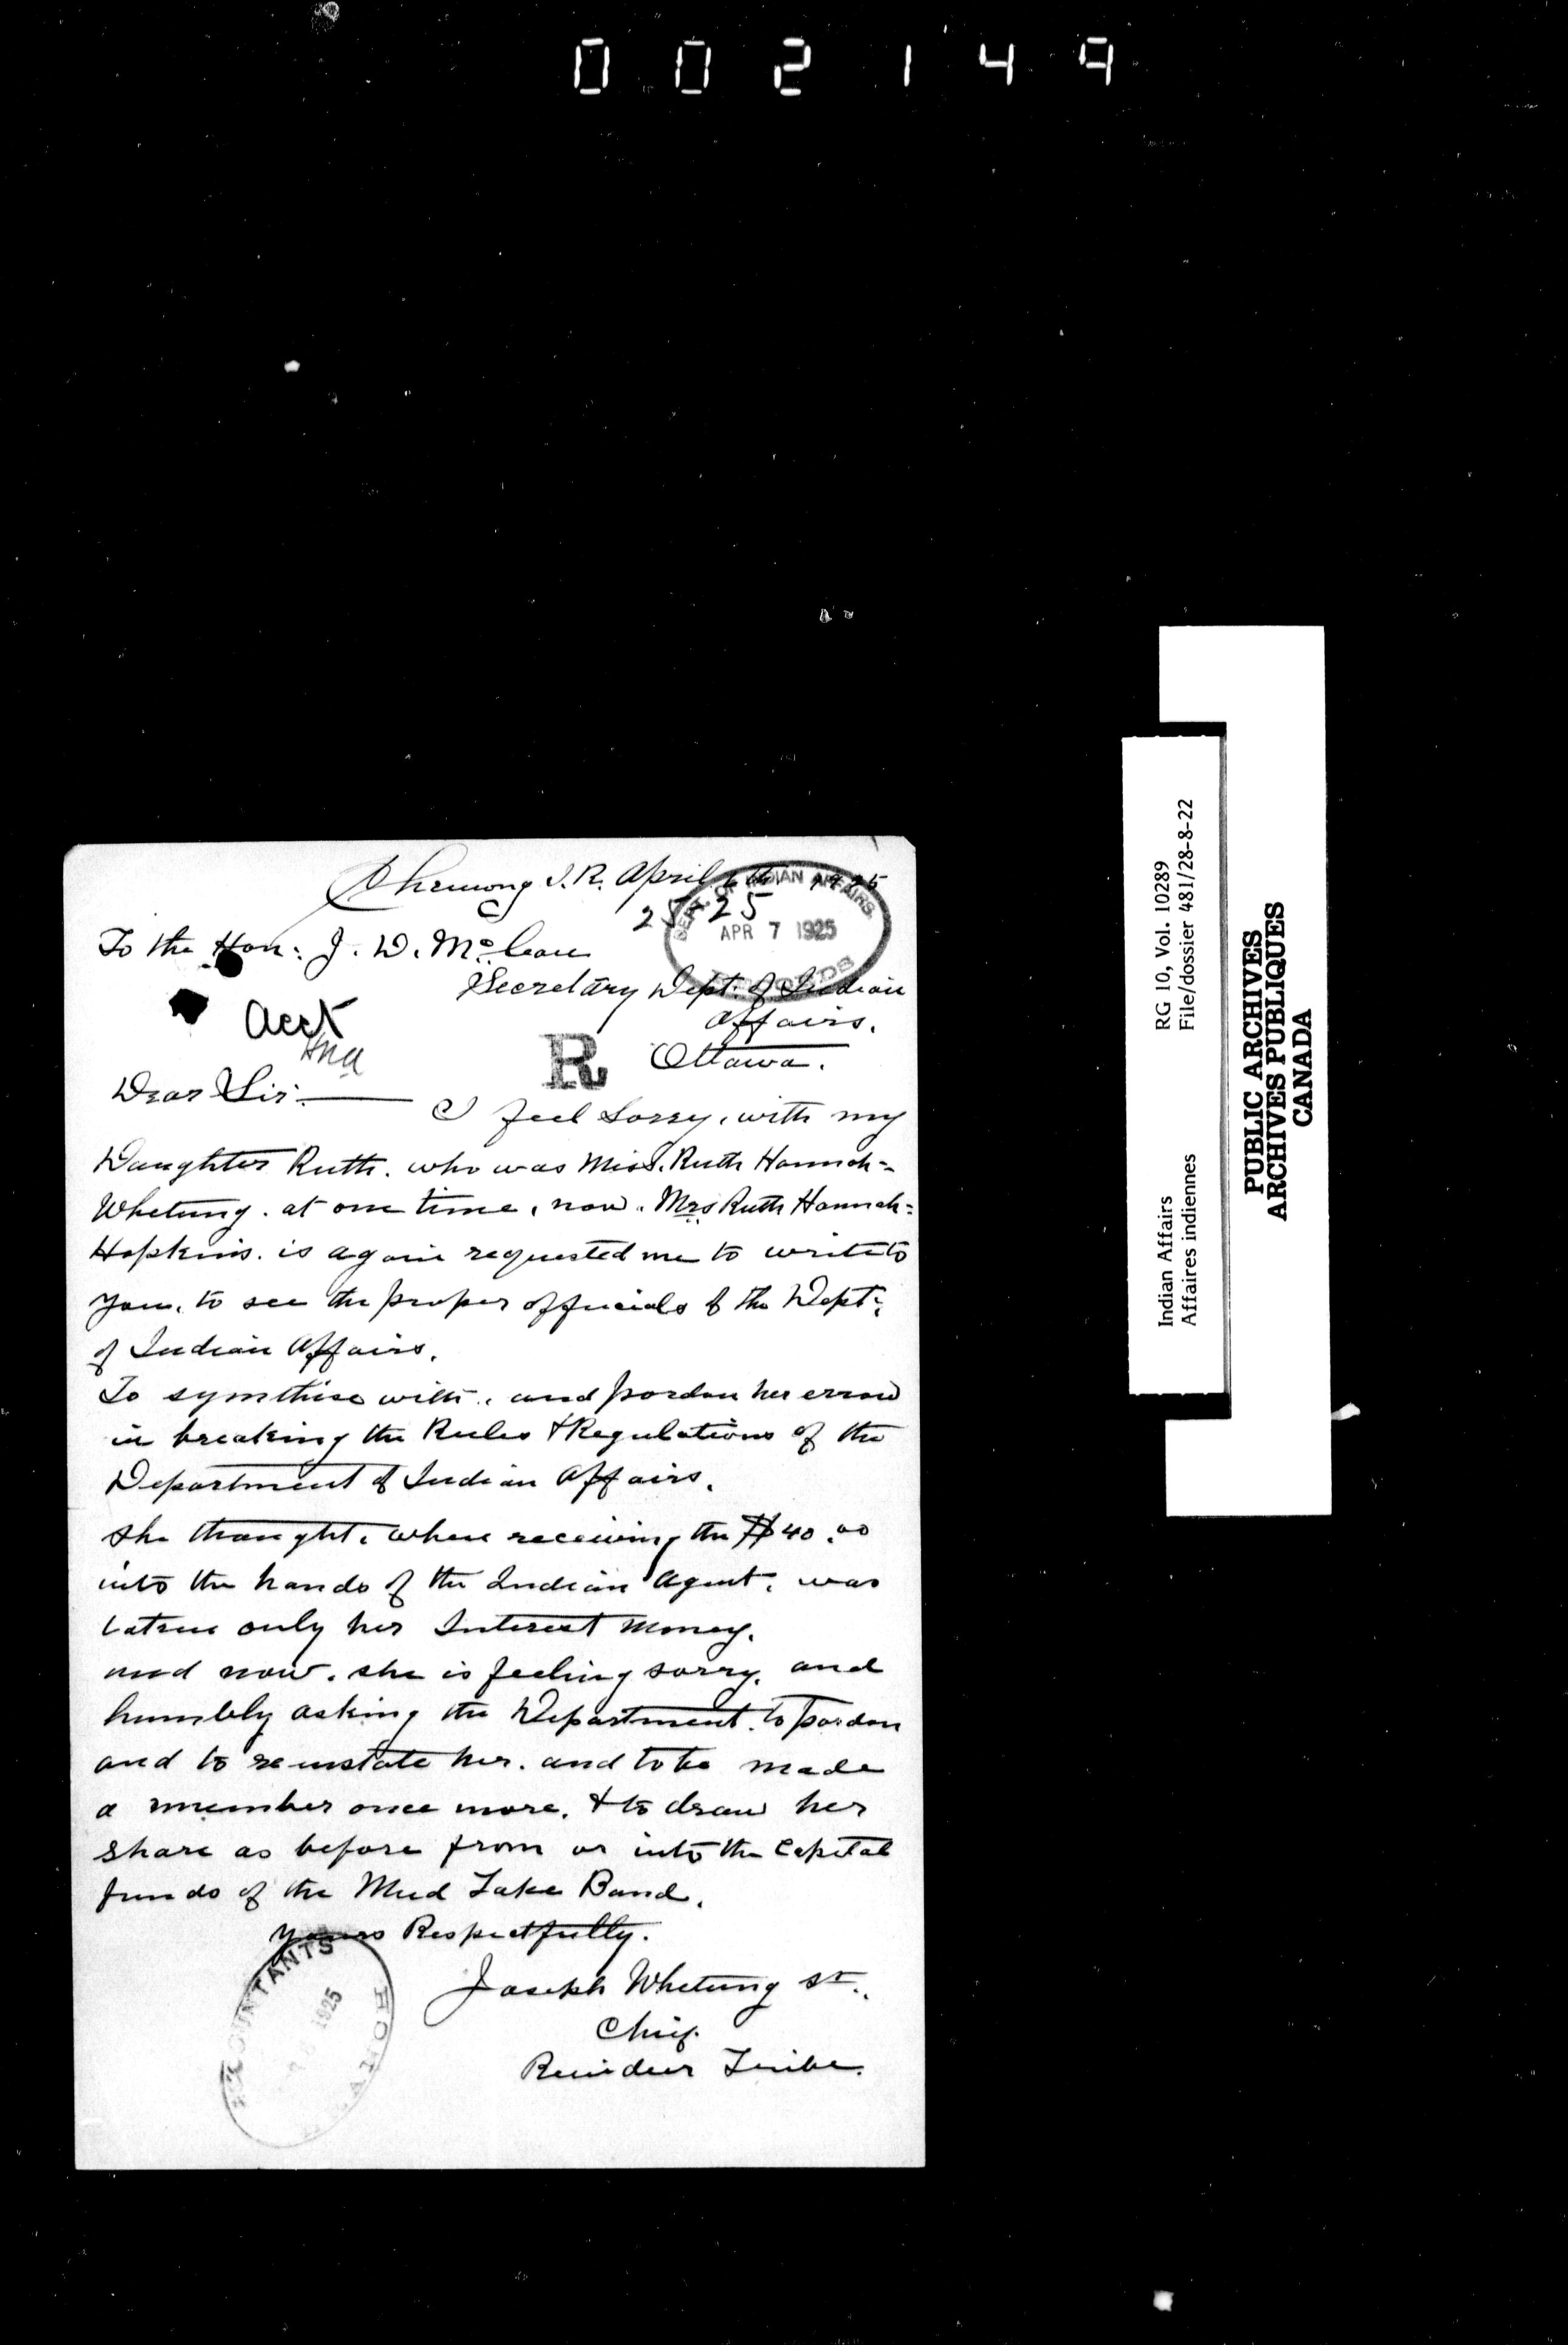 002149
Chemong I.R. April 6th 1925
25-25
DEPT. OF INDIAN AFFAIRS
APR 7 1925
RECORDS
To the Hon: J. D. McLean
Secretary Dept. of Indian
Affairs.
Acct
R
Ottawa.
Dear Sir:—
I feel Sorry, with my
Daughter Ruth. who was Miss. Ruth Hannah=
Whetung. at one time, now. Mrs Ruth Hannah=
Hopkins. is again requested me to write to
you, to see the proper officials of the Dept:
of Indian Affairs.
To symthise with., and pardon her error
in breaking the Rules & Regulations of the
Department of Indian Affairs.
She thought, when receiving the $40.00
into the hands of the Indian Agent, was
only her Interest money.
and now. she is feeling sorry. and
humbly asking the Department. to pardon
and to reinstate her. and to be made
a member once more. & to draw her
share as before from or into the Capital
funds of the Mud Lake Band.
Yours Respectfully.
Joseph Whetung Sr.
Chief.
Reindeer Tribe.
ACCOUNTANTS
1925
Indian Affairs RG 10, Vol. 10289
Affaires indiennes File/dossier 481/28-8-22
PUBLIC ARCHIVES
ARCHIVES PUBLIQUES
CANADA